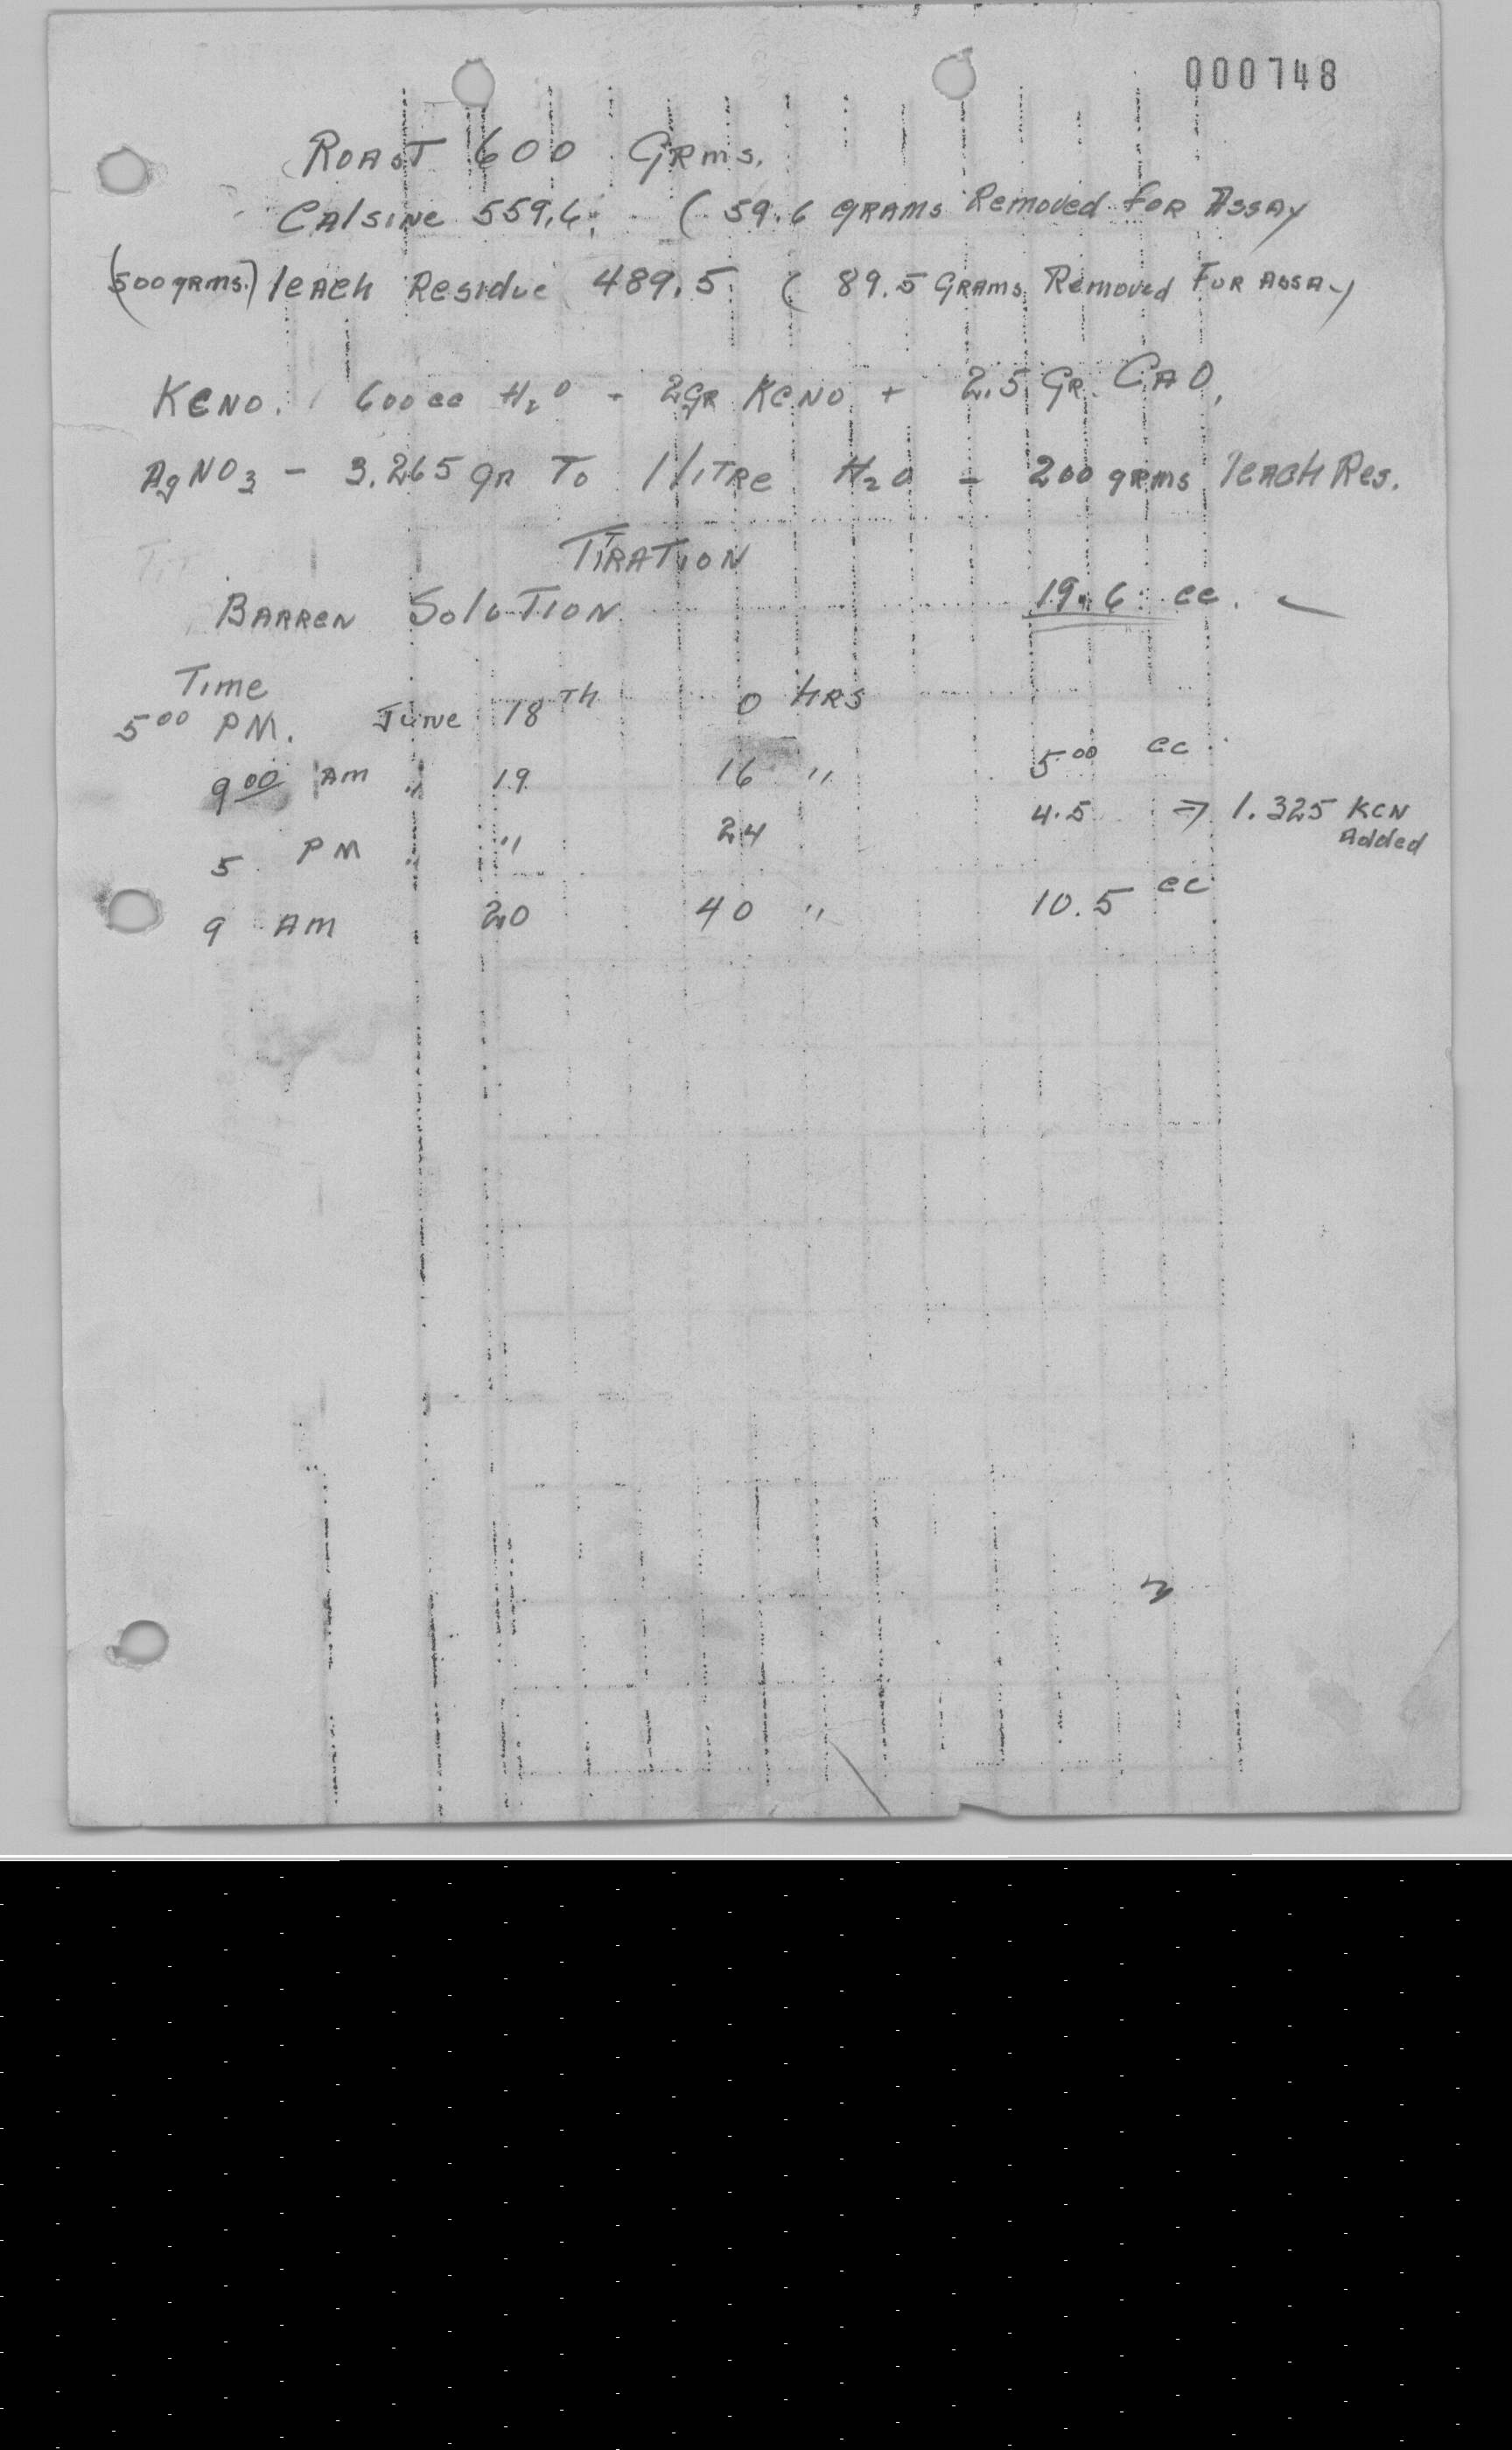 000748
ROAST 600 GRMS.
CAlSINE 559.6. (59.6 GRAMS Removed FOR ASSAY
(500 grms.) leach Residue 489.5 (89.5 GRAMS Removed FOR ASSAY
KCNO. 600 cc H2O - 2gR KCNO + 2.5 GR. CAO,
AgNO3 - 3.265 gR To 1 lITRe H2O - 200 gRms leach Res.
TITRATION
BARREN SOluTION. 19.6 cc.
Time
5 00 PM. June 18 Th 0 HRS
9 00 AM " 19 16 " 5.00 cc
5 PM " " 24 4.5 => 1.325 KCN
Added
9 AM 20 40 " 10.5 cc